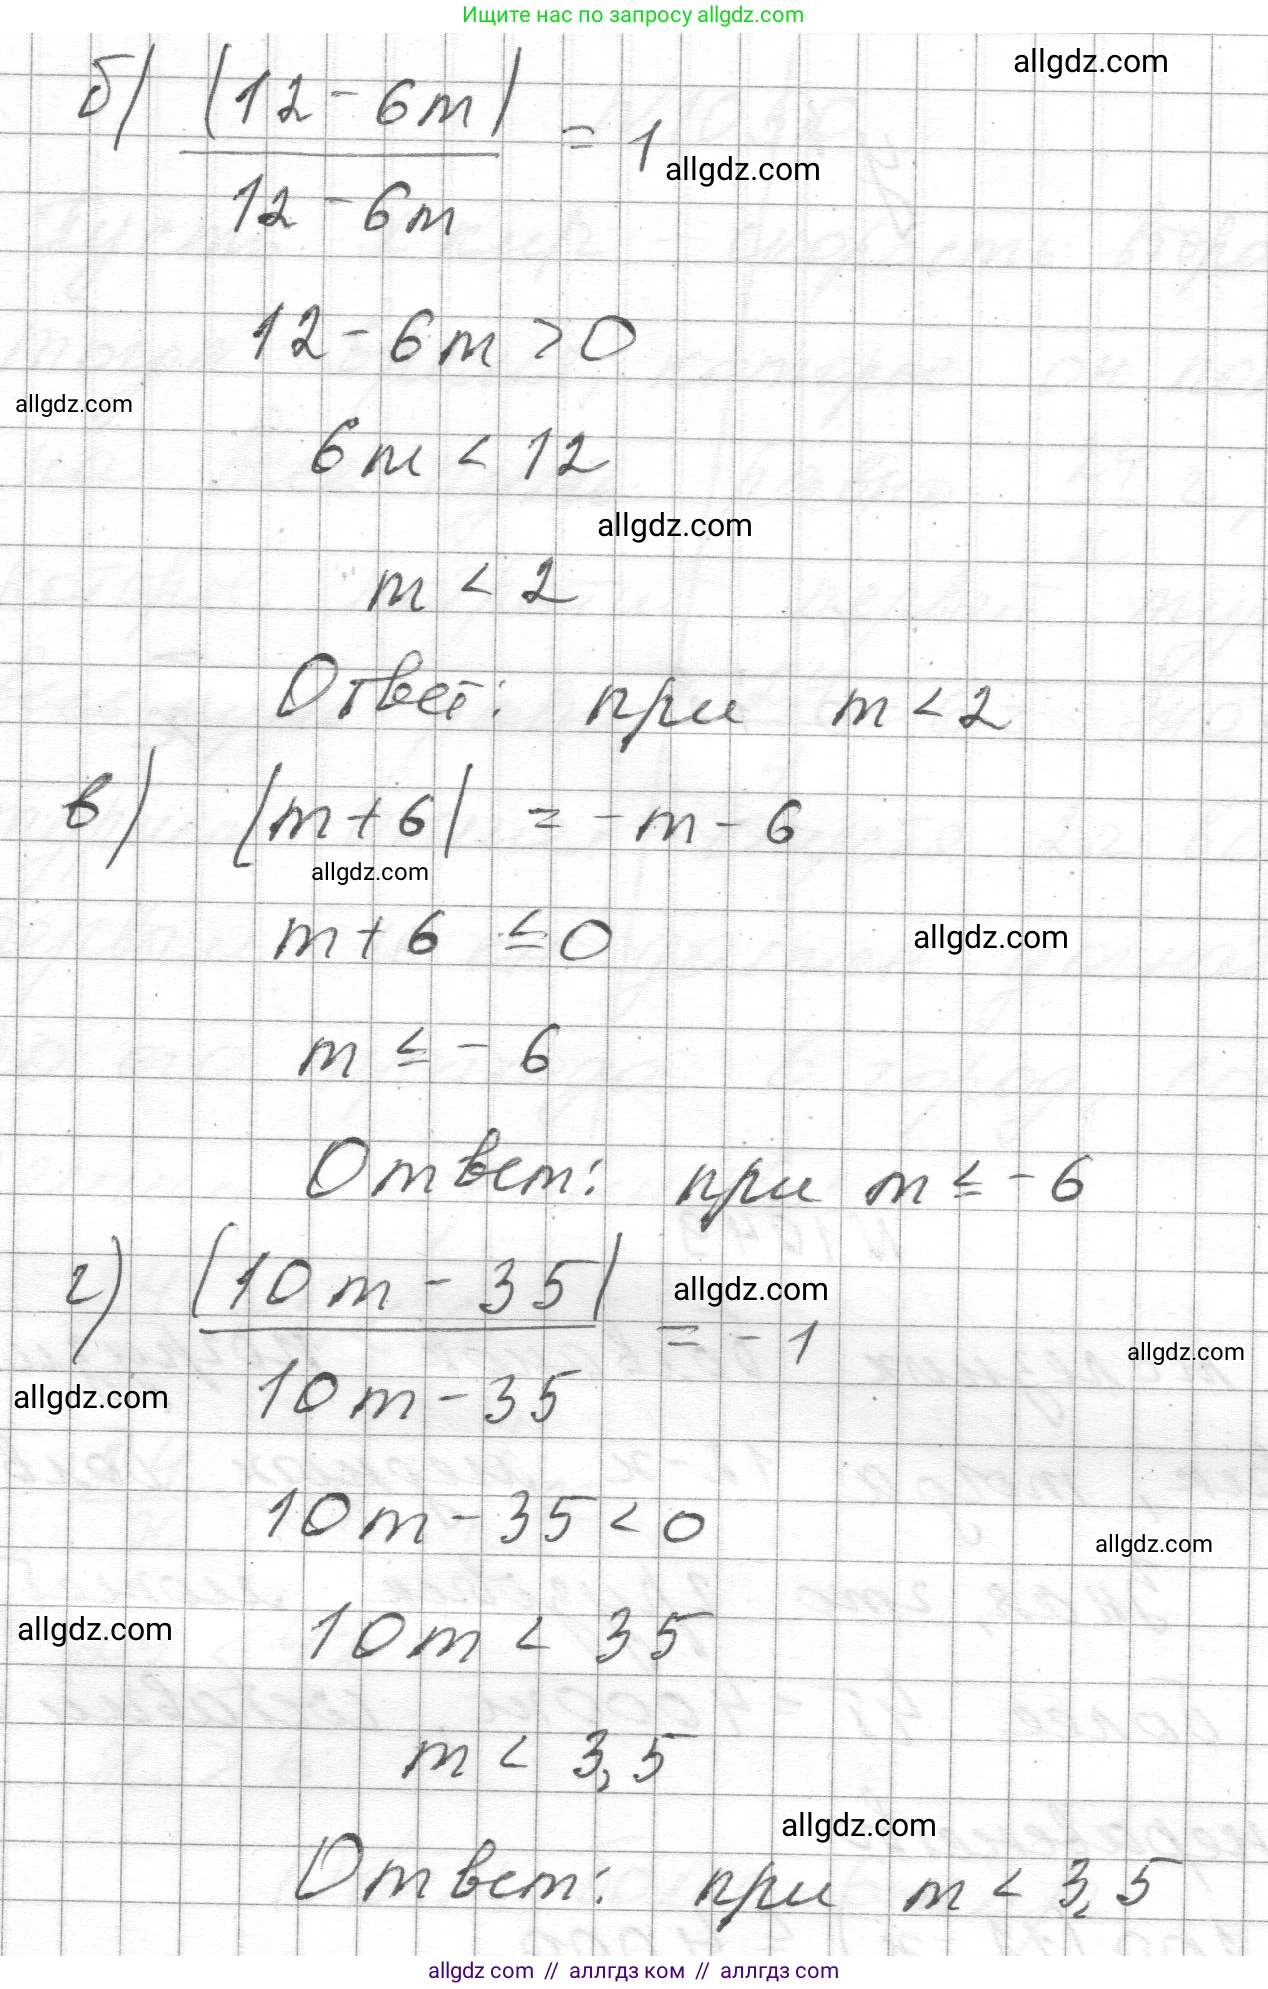 Ищите нас по запросу allgdz.com
allgdz.com
б) |12 - 6m|
/ 12 - 6m = 1
allgdz.com
12 - 6m > 0
allgdz.com
6m < 12
allgdz.com
m < 2
Ответ: при m < 2
в) |m + 6| = -m - 6
allgdz.com
m + 6 ≤ 0
allgdz.com
m ≤ - 6
Ответ: при m ≤ - 6
г) |10m - 35|
/ 10m - 35 = - 1
allgdz.com
allgdz.com
allgdz.com
10m - 35 < 0
allgdz.com
10m < 35
allgdz.com
m < 3,5
allgdz.com
Ответ: при m < 3,5
allgdz com // аллгдз ком // аллгдз com